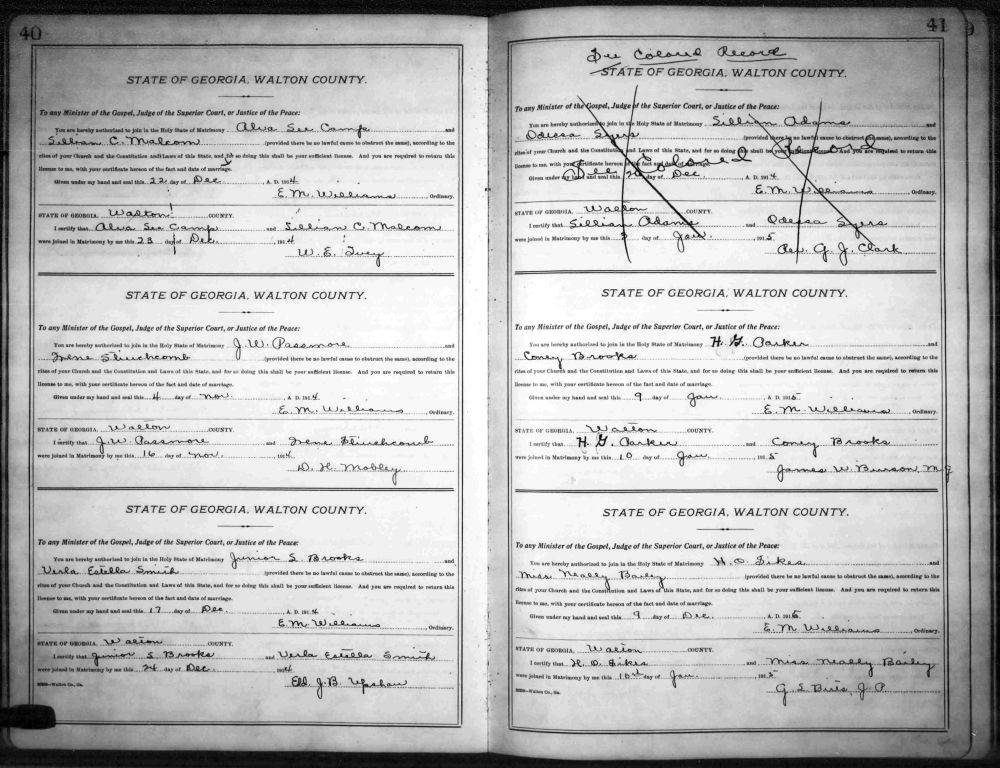 40
STATE OF GEORGIA, WALTON COUNTY.
To any Minister of the Gospel, Judge of the Superior Court, or Justice of the Peace:
You are hereby authorized to join in the Holy State of Matrimony Alva Lee Camp and
Lillian C. Malcom (provided there be no lawful cause to obstruct the same), according to the
rites of your Church and the Constitution and Laws of this State, and for so doing this shall be your sufficient license. And you are required to return this
license to me, with your certificate hereon of the fact and date of marriage.
Given under my hand and seal this 22 day of Dec A. D. 1914
E. M. Williams Ordinary.
STATE OF GEORGIA, Walton COUNTY.
I certify that Alva Lee Camp and Lillian C. Malcom
were joined in Matrimony by me this 23 day of Dec. 1914
W. E. Ivey
STATE OF GEORGIA, WALTON COUNTY.
To any Minister of the Gospel, Judge of the Superior Court, or Justice of the Peace:
You are hereby authorized to join in the Holy State of Matrimony J. W. Passmore and
Irene Stinchcomb (provided there be no lawful cause to obstruct the same), according to the
rites of your Church and the Constitution and Laws of this State, and for so doing this shall be your sufficient license. And you are required to return this
license to me, with your certificate hereon of the fact and date of marriage.
Given under my hand and seal this 4 day of Nov. A. D. 1914
E. M. Williams, Ordinary.
STATE OF GEORGIA, Walton COUNTY.
I certify that J. W. Passmore and Irene Stinchcomb
were joined in Matrimony by me this 16 day of Nov. 1914
D. H. Mobley
STATE OF GEORGIA, WALTON COUNTY.
To any Minister of the Gospel, Judge of the Superior Court, or Justice of the Peace:
You are hereby authorized to join in the Holy State of Matrimony Junior S. Brooks and
Verla Estella Smith (provided there be no lawful cause to obstruct the same), according to the
rites of your Church and the Constitution and Laws of this State, and for so doing this shall be your sufficient license. And you are required to return this
license to me, with your certificate hereon of the fact and date of marriage.
Given under my hand and seal this 17 day of Dec. A. D. 1914
E. M. Williams, Ordinary.
STATE OF GEORGIA, Walton COUNTY.
I certify that Junior S. Brooks and Verla Estella Smith
were joined in Matrimony by me this 24 day of Dec. 1914
Eld. J. B. Upshaw
Walton Co., Ga.
41
See Colored Record
STATE OF GEORGIA, WALTON COUNTY.
To any Minister of the Gospel, Judge of the Superior Court, or Justice of the Peace:
You are hereby authorized to join in the Holy State of Matrimony Lillian Adams and
Odessa Syers (provided there be no lawful cause to obstruct the same), according to the
rites of your Church and the Constitution and Laws of this State, and for so doing this shall be your sufficient license. And you are required to return this
See Colored Record
license to me, with your certificate hereon of the fact and date of marriage.
Given under my hand and seal this day of Dec. A. D. 1914
E. M. Williams Ordinary.
STATE OF GEORGIA, Walton COUNTY.
I certify that Lillian Adams and Odessa Syers
were joined in Matrimony by me this day of Jan. 1915
Rev. G. J. Clark
STATE OF GEORGIA, WALTON COUNTY.
To any Minister of the Gospel, Judge of the Superior Court, or Justice of the Peace:
You are hereby authorized to join in the Holy State of Matrimony H. G. Parker and
Coney Brooks (provided there be no lawful cause to obstruct the same), according to the
rites of your Church and the Constitution and Laws of this State, and for so doing this shall be your sufficient license. And you are required to return this
license to me, with your certificate hereon of the fact and date of marriage.
Given under my hand and seal this 9 day of Jan. A. D. 1915
E. M. Williams Ordinary.
STATE OF GEORGIA, Walton COUNTY.
I certify that H. G. Parker and Coney Brooks
were joined in Matrimony by me this 10 day of Jan 1915
James W. Burson, M. G
STATE OF GEORGIA, WALTON COUNTY.
To any Minister of the Gospel, Judge of the Superior Court, or Justice of the Peace:
You are hereby authorized to join in the Holy State of Matrimony H. O. Sikes and
Miss Neally Bailey (provided there be no lawful cause to obstruct the same), according to the
rites of your Church and the Constitution and Laws of this State, and for so doing this shall be your sufficient license. And you are required to return this
license to me, with your certificate hereon of the fact and date of marriage.
Given under my hand and seal this 9 day of Dec. A. D. 1915
E. M. Williams Ordinary.
STATE OF GEORGIA, Walton COUNTY.
I certify that H. O. Sikes and Miss Neally Bailey
were joined in Matrimony by me this 10 day of Jan. 1915
G. S. J. P.
Walton Co., Ga.